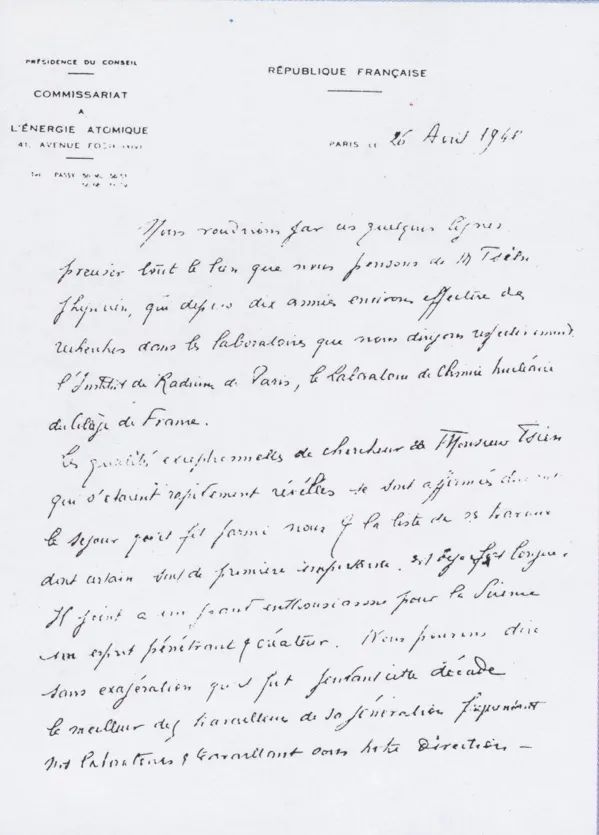 PRÉSIDENCE DU CONSEIL
COMMISSARIAT
A
L'ÉNERGIE ATOMIQUE
41, AVENUE FOCH
TEL. PASSY
RÉPUBLIQUE FRANÇAISE
PARIS LE 26 Avril 1948
Nous voudrions par ces quelques lignes
préciser tout le bien que nous pensons de M Tsien
qui depuis dix années environ effectue des
recherches dans les laboratoires que nous dirigeons respectivement
l'Institut du Radium de Paris, le laboratoire de Chimie Nucléaire
du Collège de France.
Les qualités exceptionnelles de chercheur de Monsieur Tsien
qui s'étaient rapidement révélées se sont affirmées durant
le séjour qu'il fit parmi nous & la liste de ses travaux
dont certain sont de première importance, est déjà longue.
Il joint à un grand enthousiasme pour la Science
un esprit pénétrant & créateur. Nous pouvons dire
sans exagération qu'il fut pendant cette décade
le meilleur des travailleurs de sa génération fréquentant
nos laboratoires & travaillant sous notre direction -